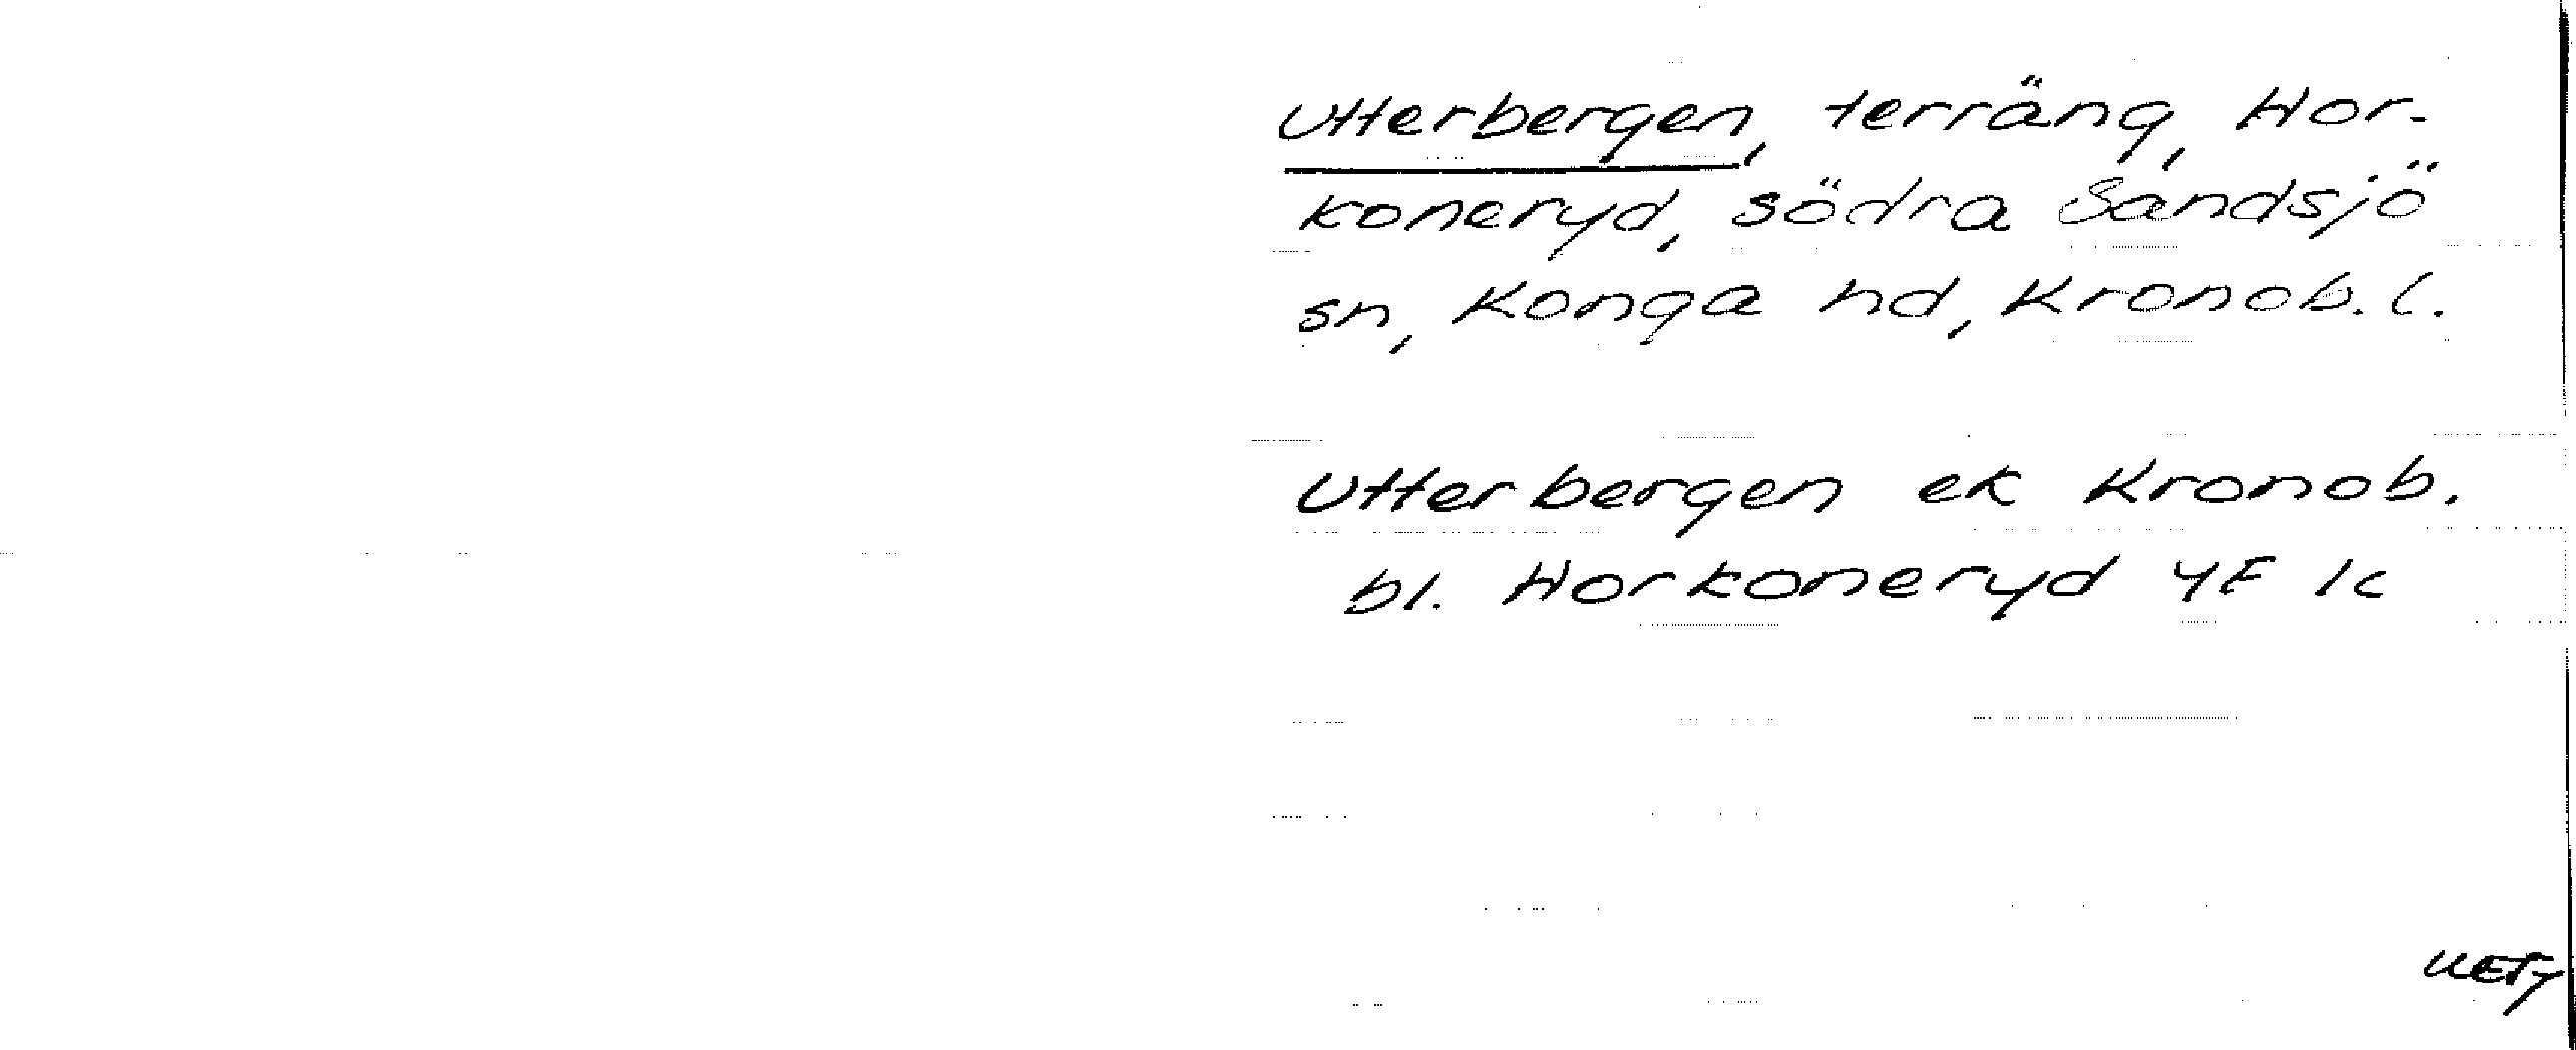 Utterbergen, terräng, Hor-
koneryd, södra Sandsjö
sn, Konga hd, Kronob. l.
Utterbergen ek Kronob.
bl. Horkoneryd 4F 1c